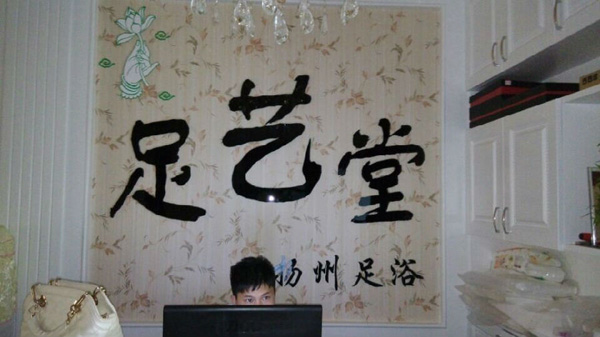 足艺堂
扬州足浴